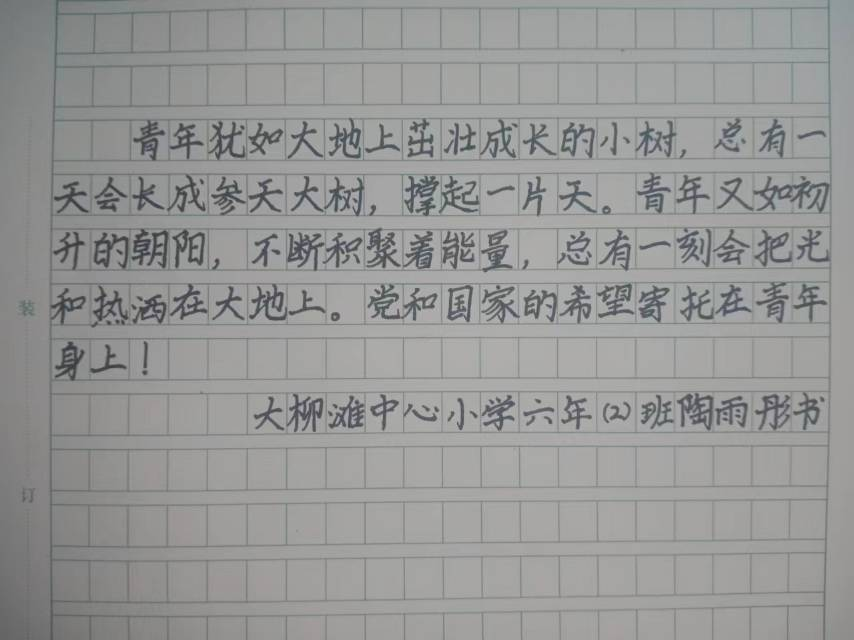 青年犹如大地上茁壮成长的小树，总有一
天会长成参天大树，撑起一片天。青年又如初
升的朝阳，不断积聚着能量，总有一刻会把光
和热洒在大地上。党和国家的希望寄托在青年
装
身上！
大柳滩中心小学六年(2)班陶雨彤书
订